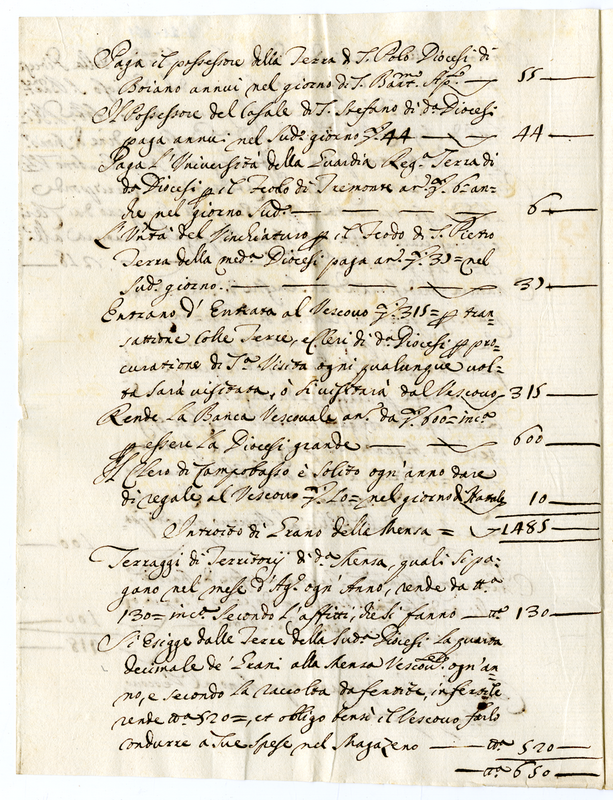 Paga il possessore della Terra di S. Polo Diocesi di
Boiano annui nel giorno di S. Bart.º Ap.º — 55 —
Il Possessore del Casale di S. Stefano di dª Diocesi
paga annui nel Sudº giorno 44 — 44 —
Paga L'Università della Guardia Regª Terra di
dª Diocesi p il feodo di Tremonte anº 6= an-
che nel giorno Sudº — 6 —
L'Untà del Vinchiaturo p il feodo di S. Pietro
Terra della medª Diocesi paga anº 39= nel
Sudº giorno. — 39 —
Entrano d'Entrata al Vescovo 315= p tran-
sattione colle Terre, e Cleri di dª Diocesi p pro-
curatione di Sª Visita ogni qualunque vol-
ta sarà visitata, ò si visitarà dal Vescovo 315 —
Rende La Banca Vescovale anº da 600= incª
p essere La Diocesi grande — 600 —
Il Clero di Campobasso è solito ogn'anno dare
di regale al Vescovo 10= nel giorno di Natale 10 —
Introito di Grano della Mensa = 1485 —
Terraggi di Territorij di dª Mensa, quali si pa-
gano nel mese d'Agº ogn'Anno, rende da ttª
130= incª secondo L'affitti, che si fanno — ttª 130 —
Si Esigge dalle Terre della Sudª Diocesi La quarta
decimale de' Grani alla Mensa Vescovˡᵉ ogn'an-
no, e secondo La raccolta da fertile, infertile
rende ttª 520=, et obligo bensì il Vescovo farlo
condurre a Sue Spese nel Magazeno — ttª 520 —
— ttª 650 —